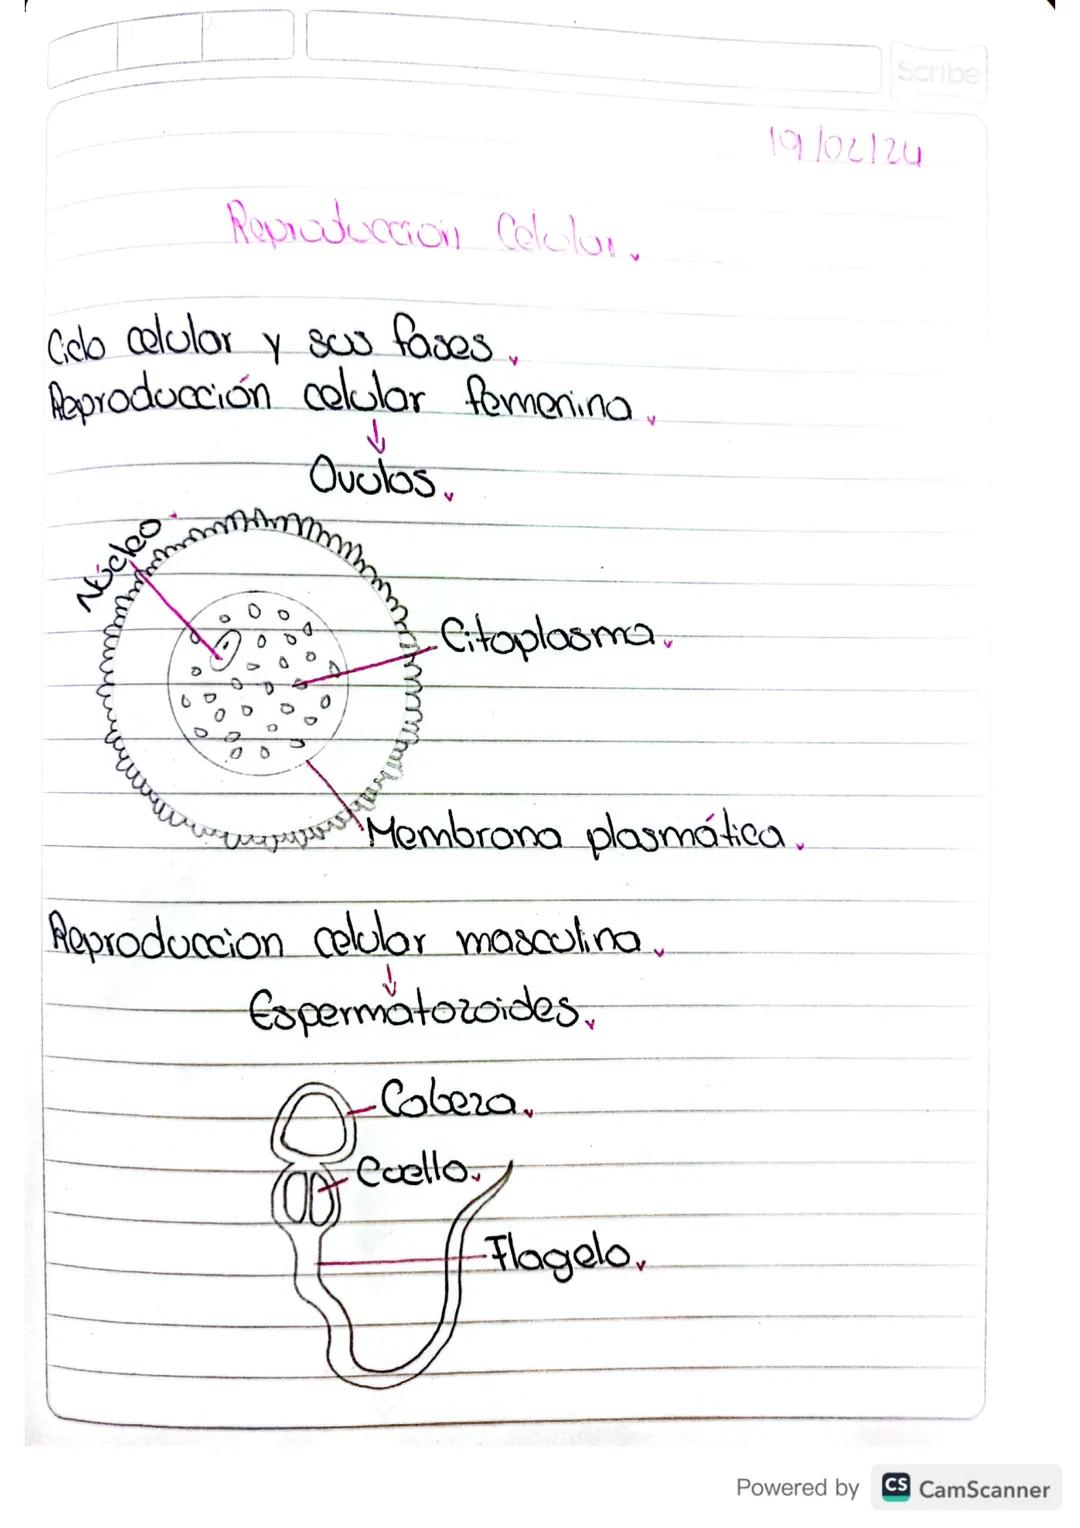 Scribe
19/02/24
Reproduccion Celular.
Ciclo celular y sus fases.
Reproducción celular femenina.
Ovulos.
Núcleo.
Citoplasma.
Membrana plasmática.
Reproduccion celular masculina.
Espermatozoides.
Cabeza.
Cuello.
Flagelo.
Powered by CS CamScanner